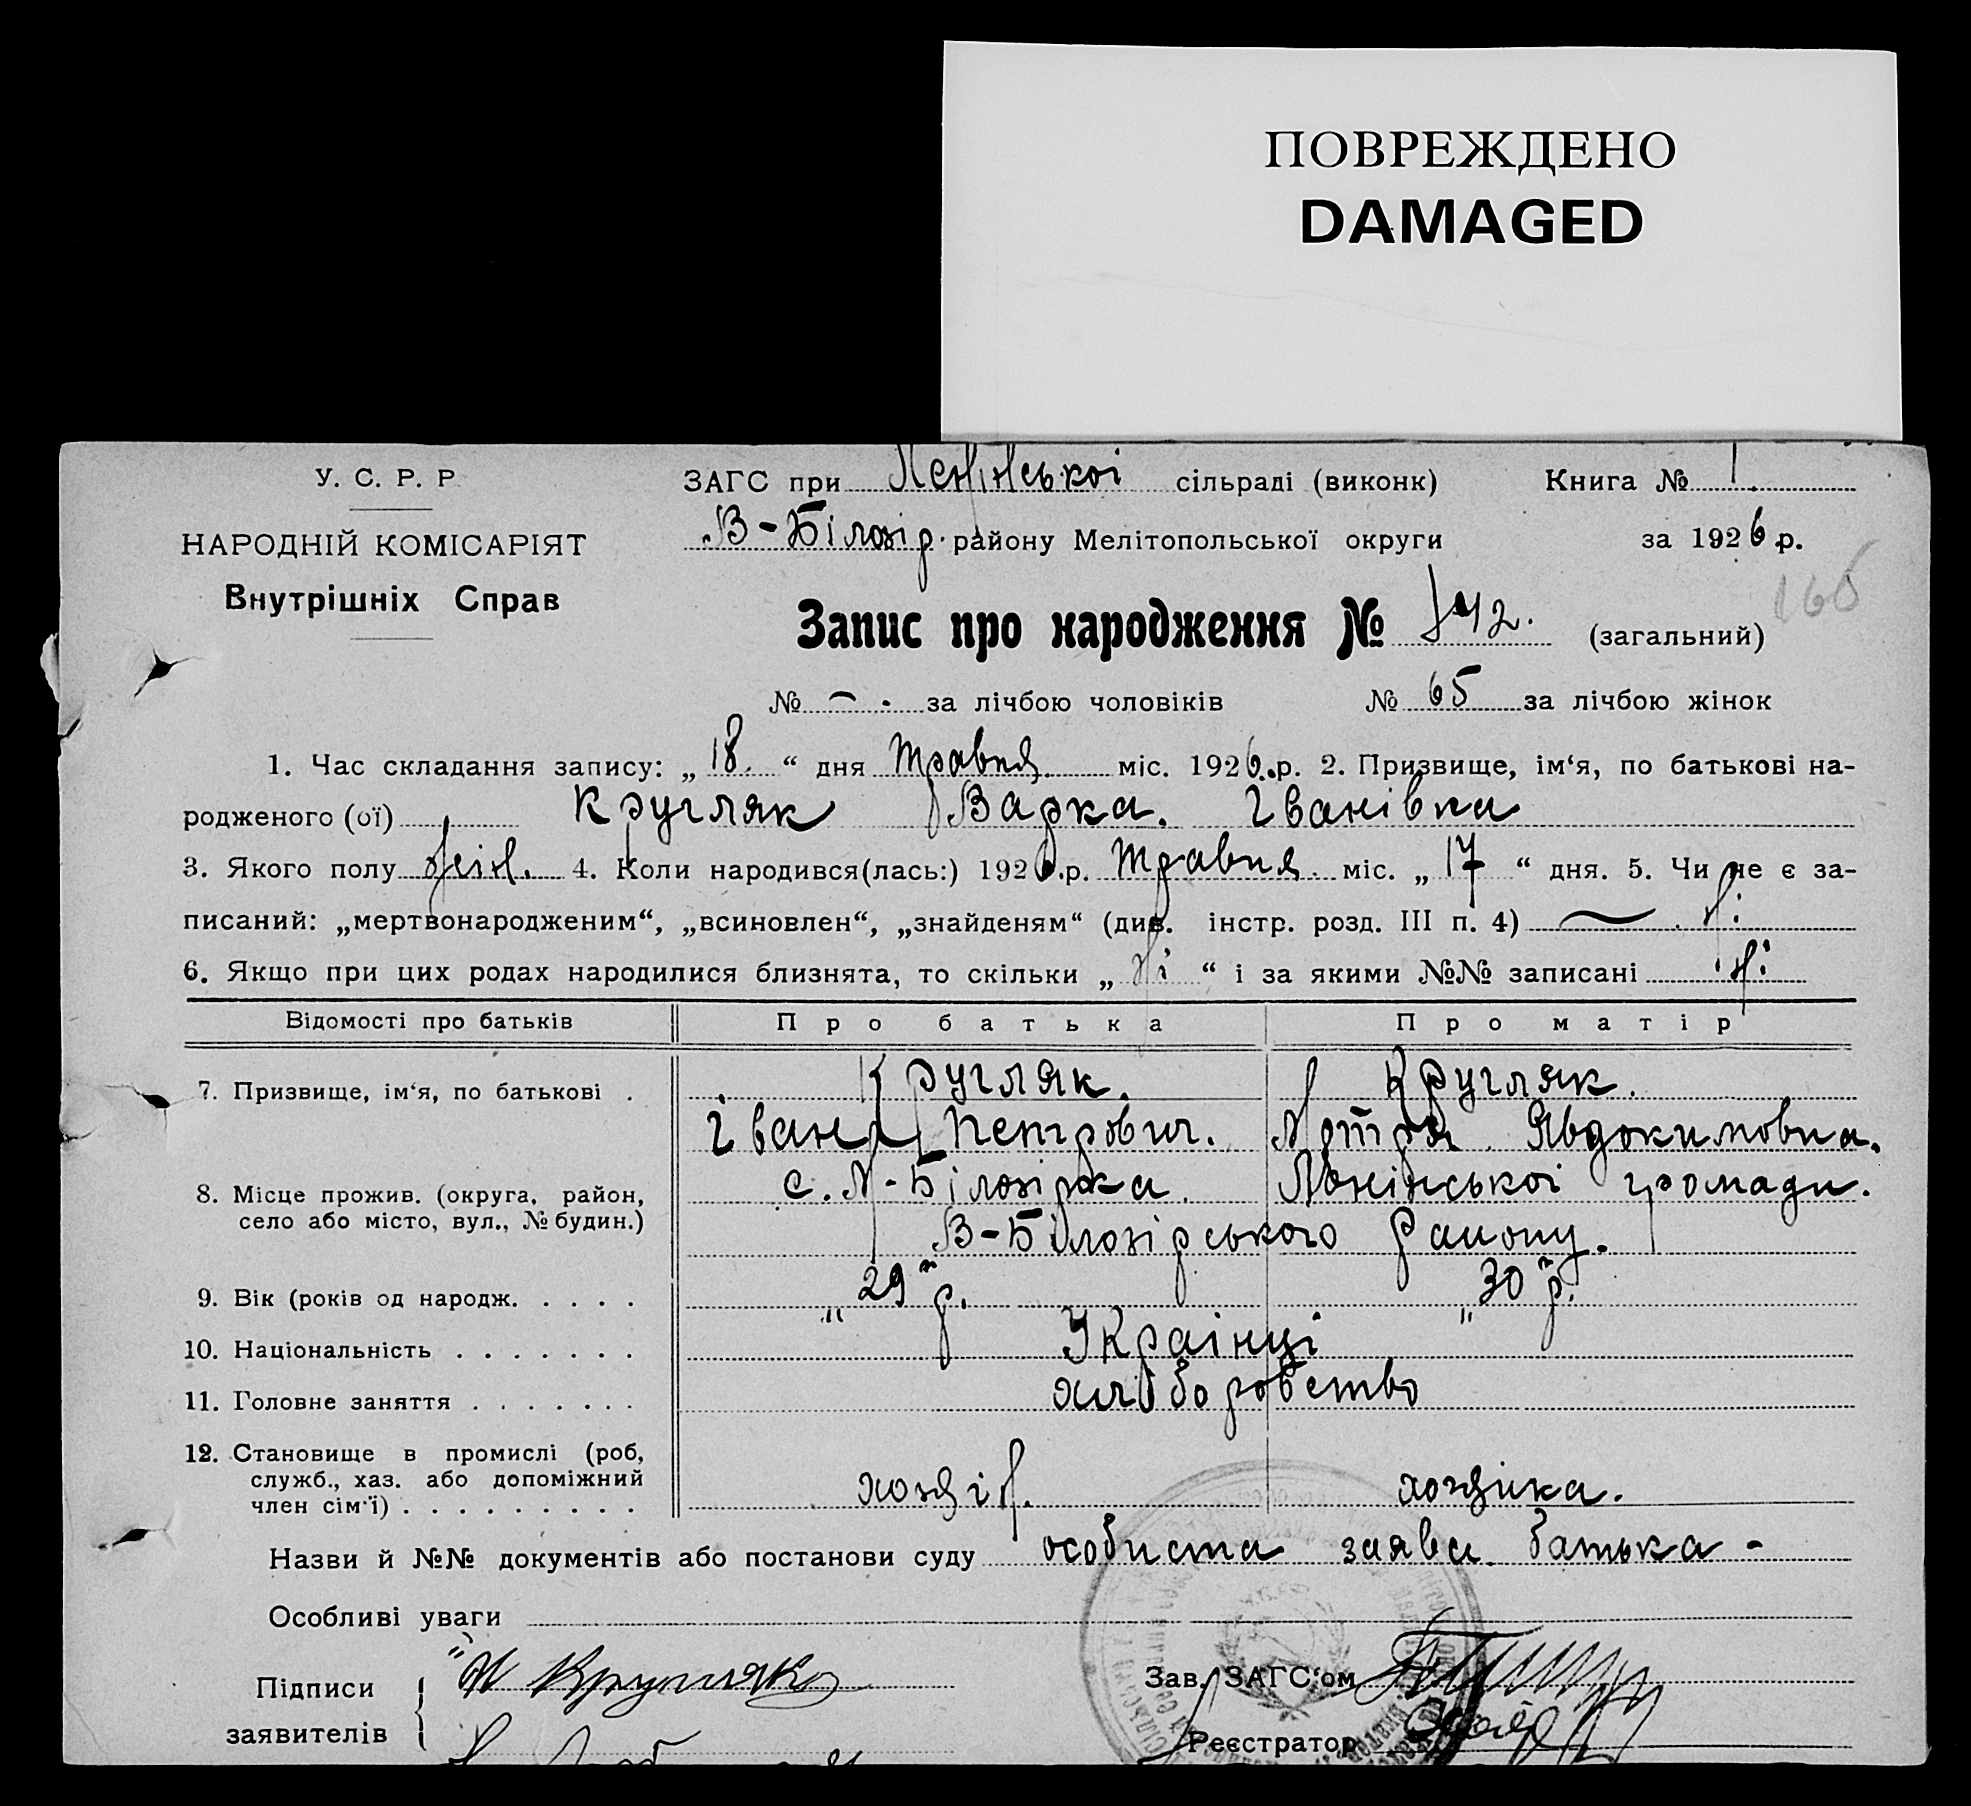 ПОВРЕЖДЕНО
DAMAGED
У. С. Р. Р
ЗАГС при Ленінської сільраді (виконк) Книга № 1.
НАРОДНІЙ КОМІСАРІЯТ
В-Білозір. району Мелітопольської округи за 1926 р.
Внутрішніх Справ
166
Запис про народження № 142. (загальний)
№ - . за лічбою чоловіків № 65 за лічбою жінок
1. Час складання запису: „ 18. “ дня травня міс. 1926.р. 2. Призвище, ім‘я, по батькові на-
родженого (ої) Кругляк Варка. Іванівна
3. Якого полу жін. 4. Коли народився(лась:) 1926.р. травня міс. „ 17 “ дня. 5. Чи не є за-
писаний: „мертвонародженим“, „всиновлен“, „знайденям“ (див. інстр. розд. III п. 4) — . ні
6. Якщо при цих родах народилися близнята, то скільки „ ні “ і за якими №№ записані ні
Відомості про батьків Про батька Про матір
7. Призвище, ім‘я, по батькові . Кругляк. Кругляк.
Іван Петрович. Мотря Явдокимовна.
8. Місце прожив. (округа, район, с. М-Білозірка Ленінської громади.
село або місто, вул., № будин.)
В-Білозірського району.
9. Вік (років од народж. . . . . „ 29 р. „ 30 р.
10. Національність . . . . . . . Українці
11. Головне заняття . . . . . . . хліборобство
12. Становище в промислі (роб,
служб., хаз. або допоміжний хозяін. хозяїка.
член сім‘ї) . . . . . . . . .
Назви й №№ документів або постанови суду особиста заява батька -
Особливі уваги
Підписи И Кругляко Зав. ЗАГС‘ом
заявителів Реєстратор